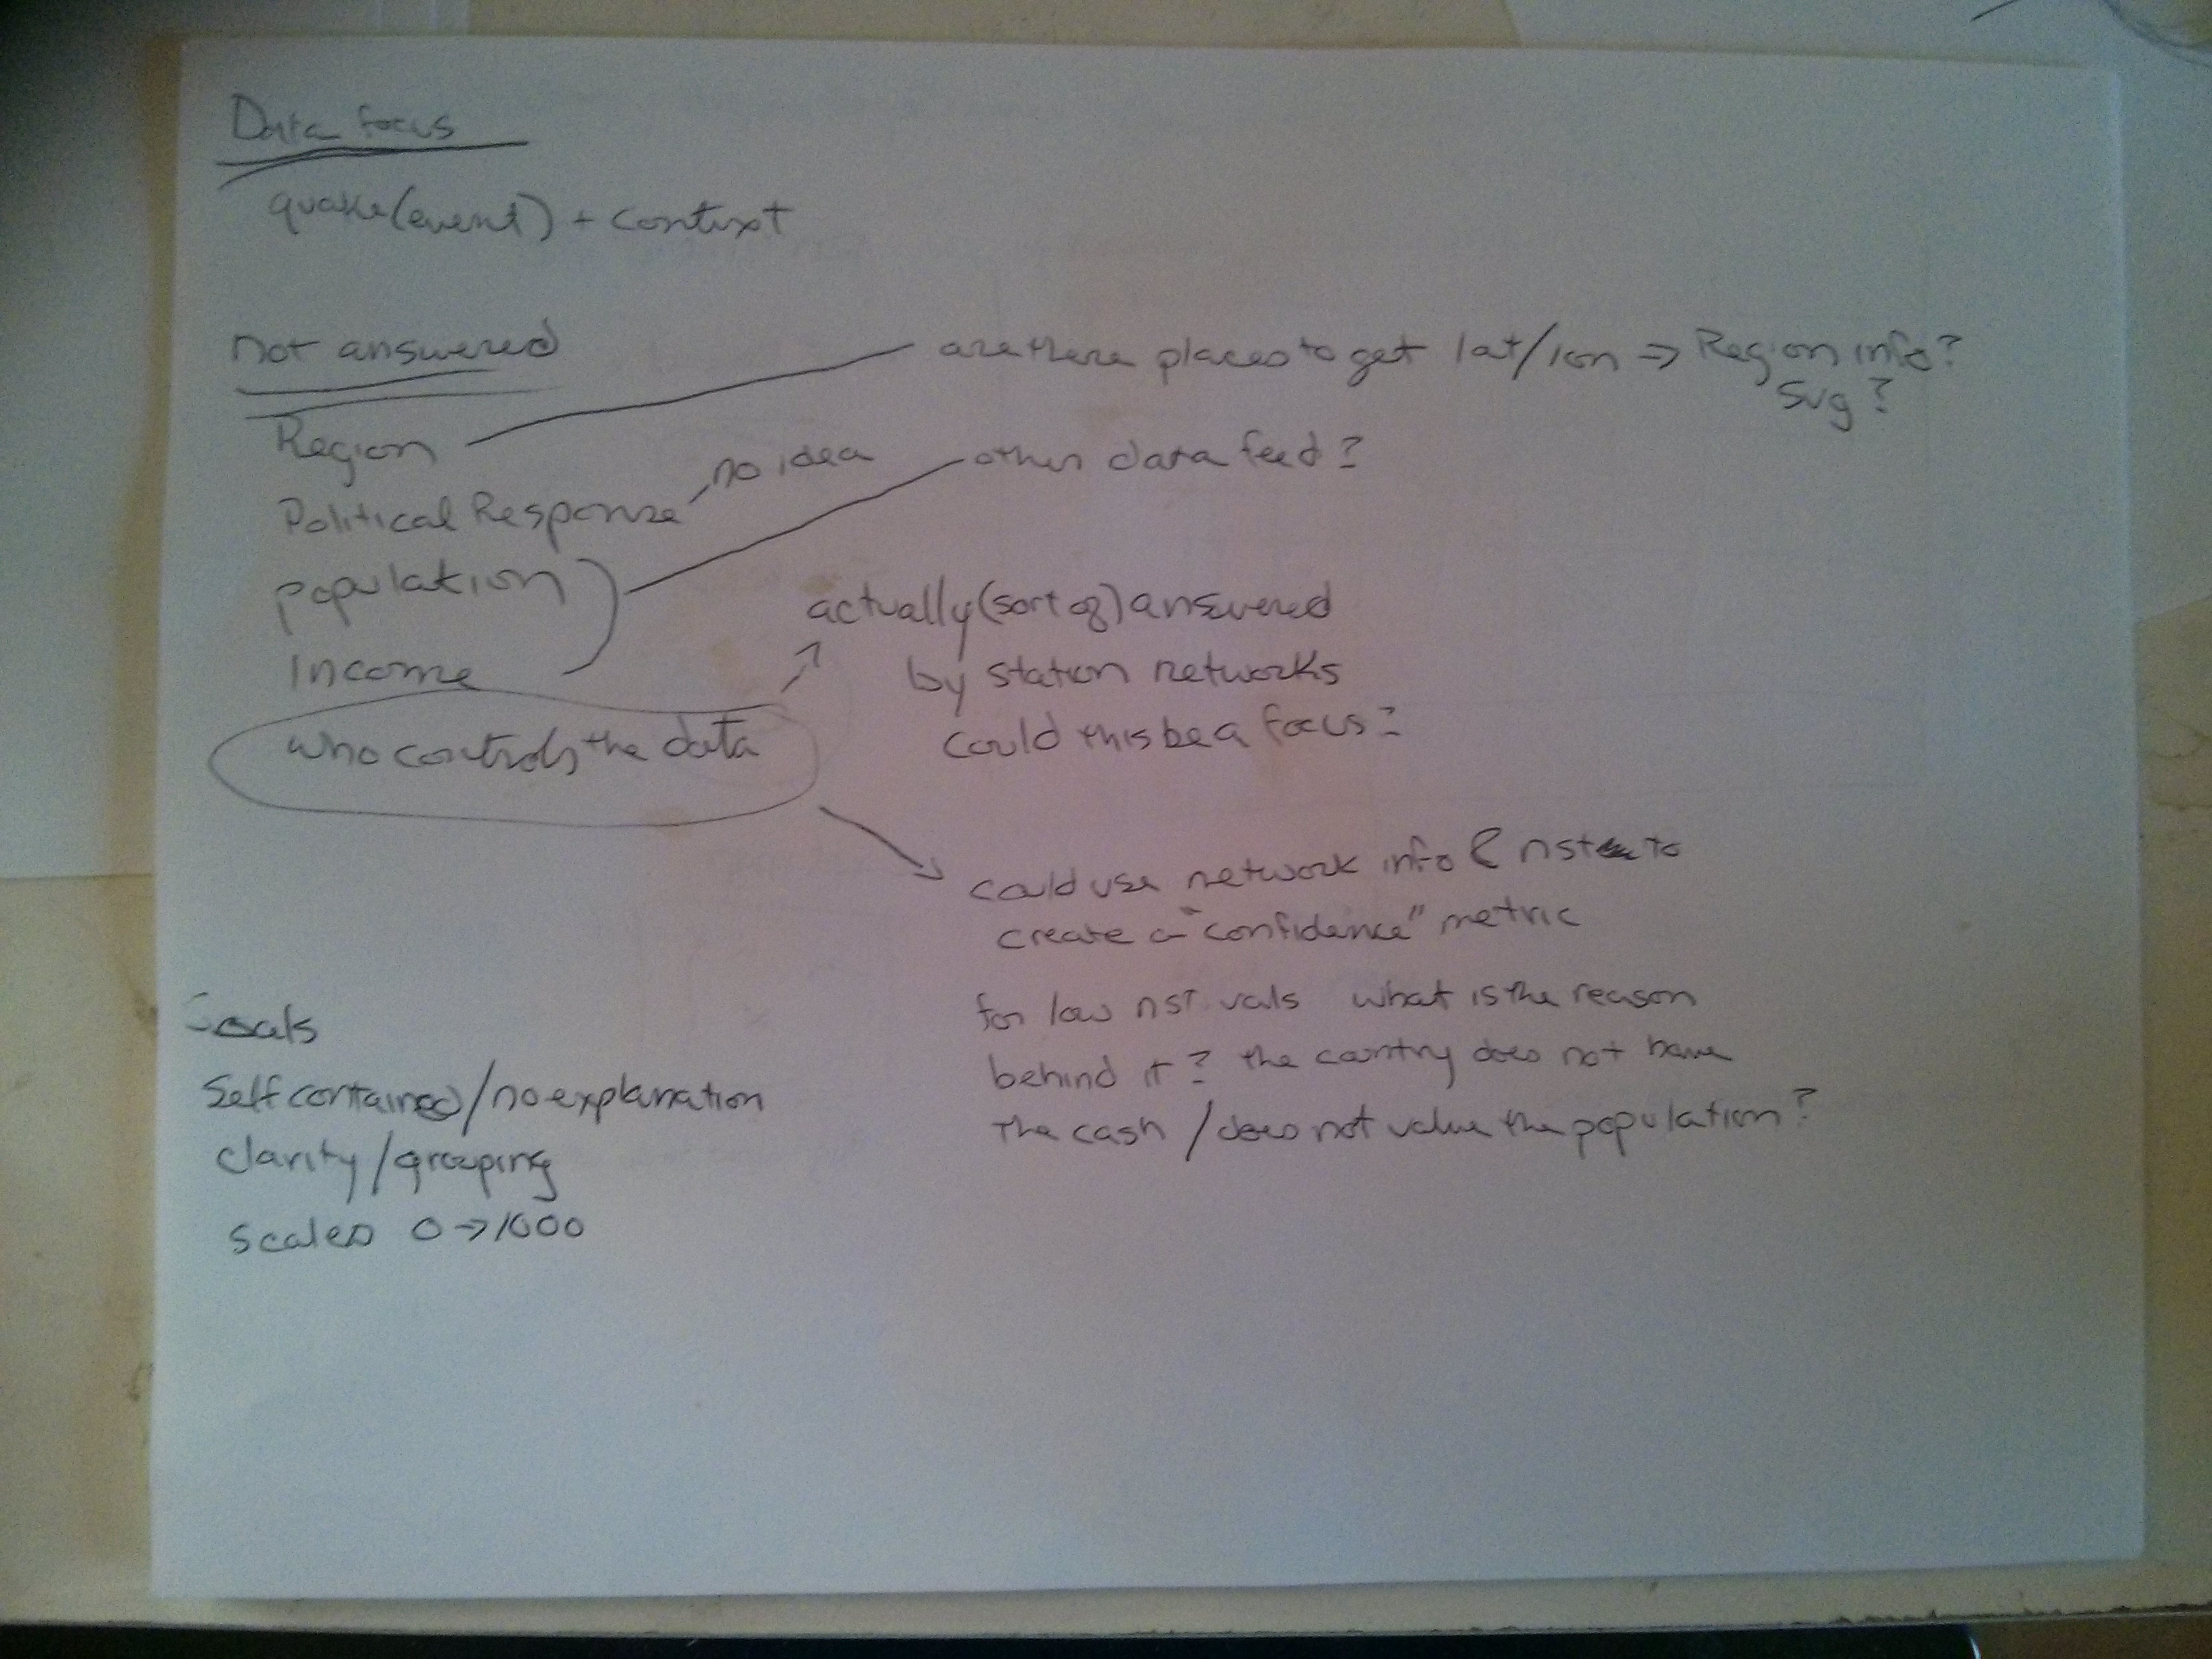 Data focus
quake(event) + context
not answered
Region
are there places to get lat/lon → Region info?
Svg?
Political Response
no idea
other data feed?
population
Income
who controls the data
actually (sort of) answered
by station networks
could this be a focus?
could use network info & nst to
create a "confidence" metric
for low nst vals what is the reason
behind it? the country does not have
the cash / does not value the population?
Goals
Self contained/no explanation
clarity/grouping
scales 0→1000